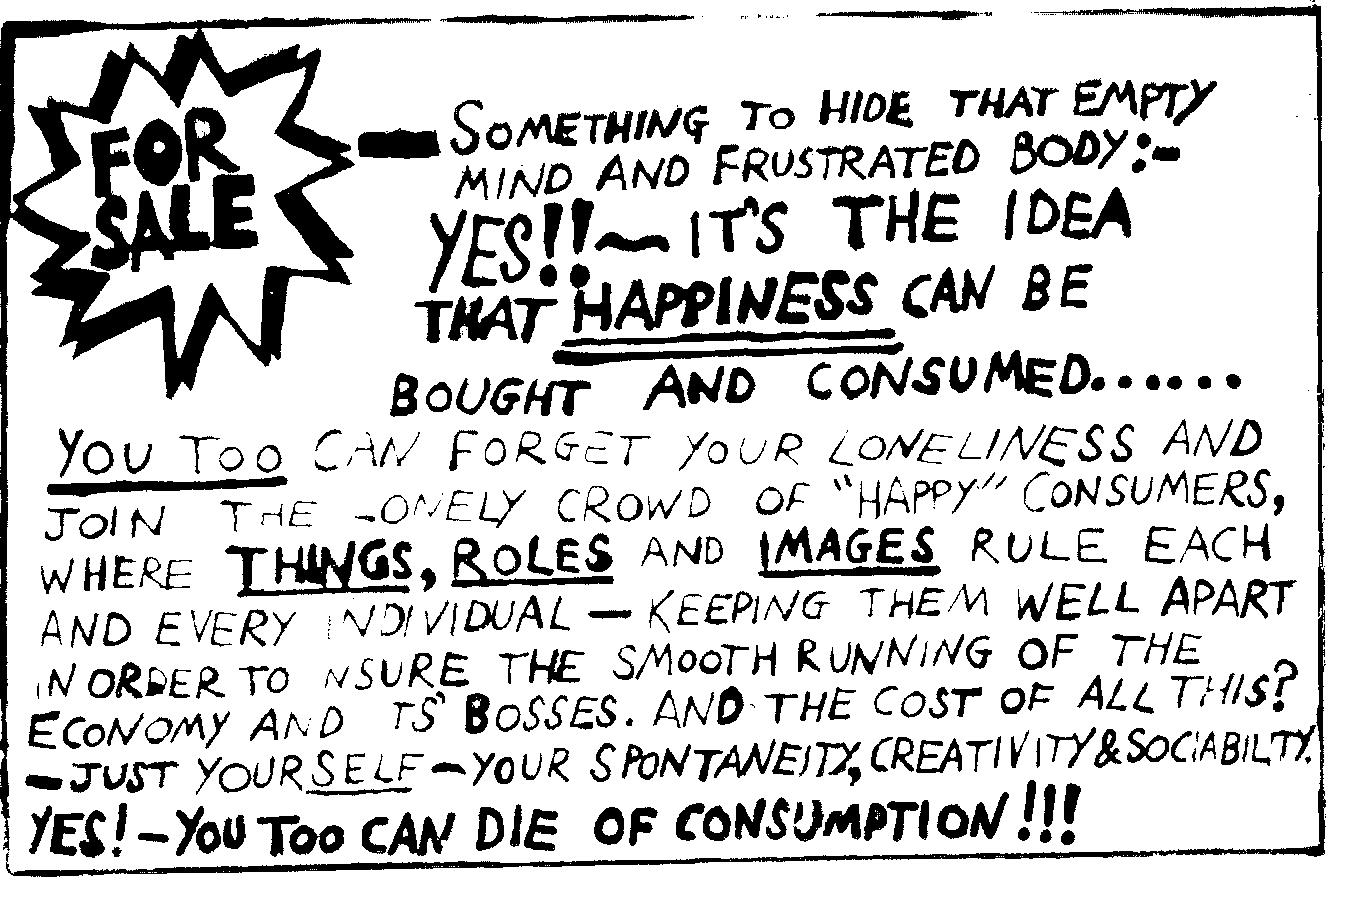 FOR
SALE
— SOMETHING TO HIDE THAT EMPTY
MIND AND FRUSTRATED BODY:-
YES!! ~ IT'S THE IDEA
THAT HAPPINESS CAN BE
BOUGHT AND CONSUMED......
YOU TOO CAN FORGET YOUR LONELINESS AND
JOIN THE LONELY CROWD OF "HAPPY" CONSUMERS,
WHERE THINGS, ROLES AND IMAGES RULE EACH
AND EVERY INDIVIDUAL — KEEPING THEM WELL APART
IN ORDER TO NSURE THE SMOOTH RUNNING OF THE
ECONOMY AND ITS' BOSSES. AND THE COST OF ALL THIS?
— JUST YOURSELF — YOUR SPONTANEITY, CREATIVITY & SOCIABILTY.
YES! — YOU TOO CAN DIE OF CONSUMPTION!!!